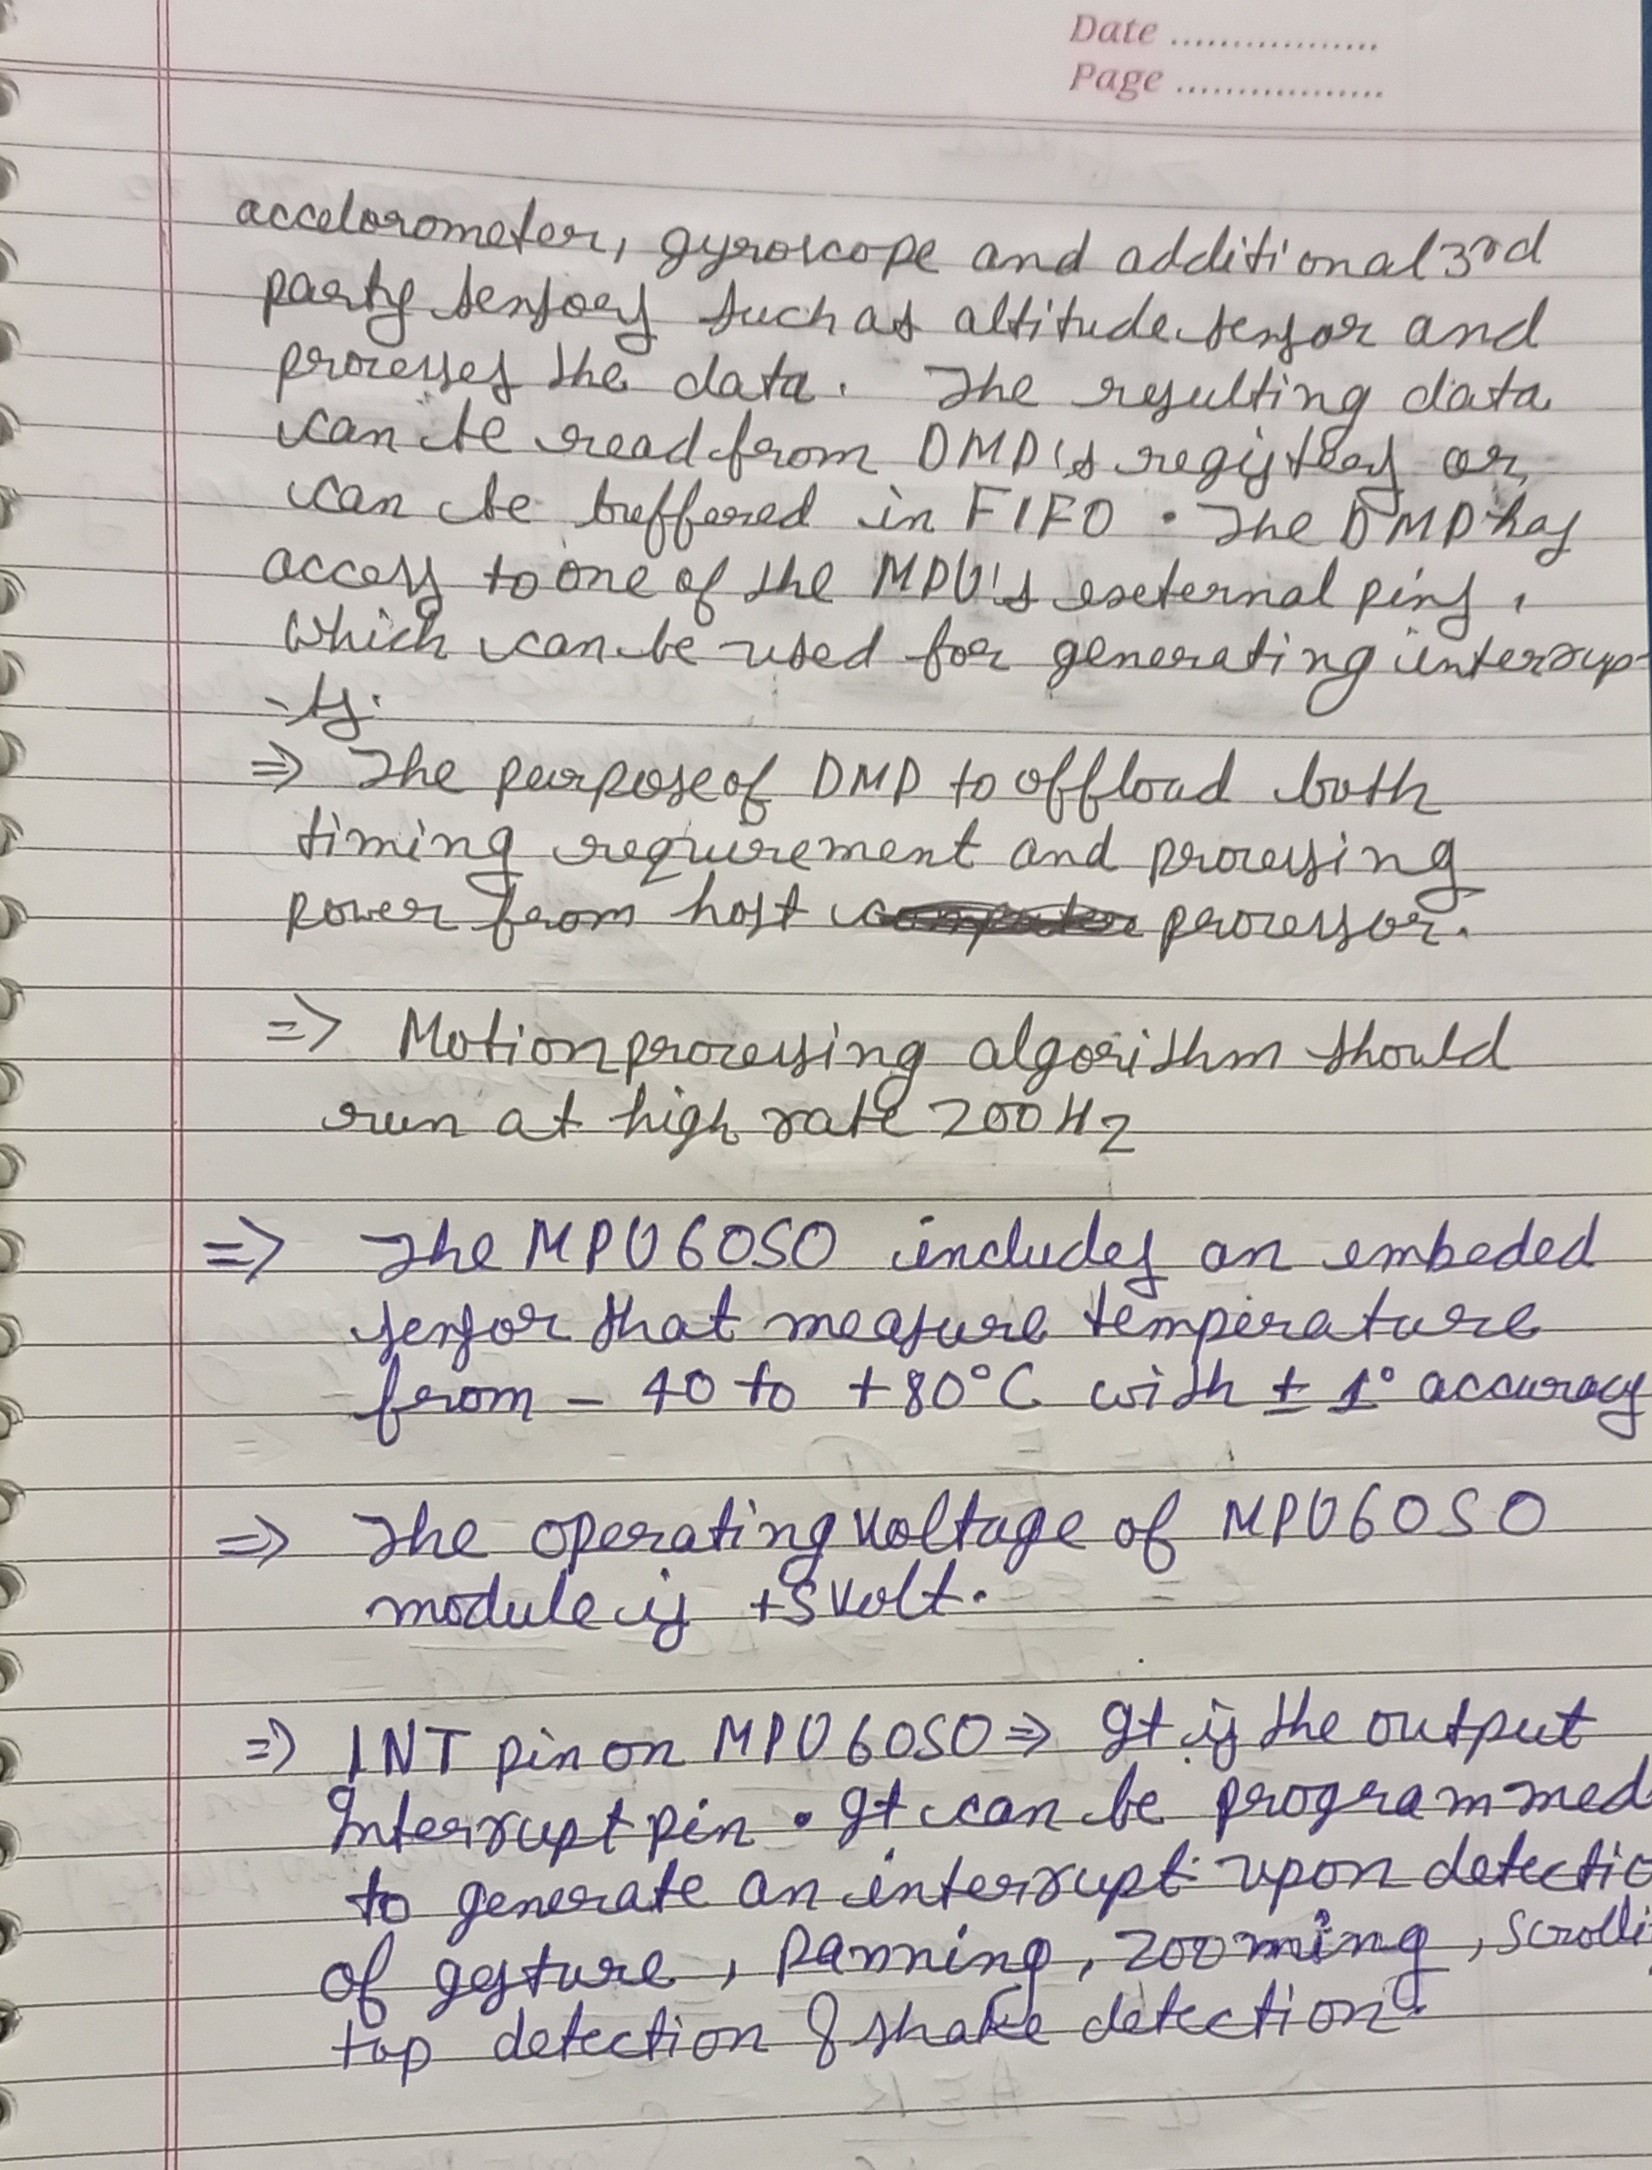 Date ..................
Page ..................
accelorometer, gyroscope and additional 3rd
party sensors such as altitude sensor and
processes the data. The resulting data
can be read from DMP's registers or
can be buffered in FIFO. The DMP has
access to one of the MPU's external pins,
which can be used for generating interrup-
-ts.
⇒ The purpose of DMP to offload both
timing requirement and processing
power from host processor.
⇒ Motion processing algorithm should
run at high rate 200Hz
⇒ The MPU6050 includes an embeded
sensor that measure temperature
from - 40 to +80°C with ± 1° accuracy
⇒ The operating voltage of MPU6050
module is +5 volt.
⇒ INT pin on MPU6050 ⇒ It is the output
Interrupt pin. It can be programmed
to generate an interrupt upon detectio
of gesture, panning, zooming, scrolli
tap detection & shake detection.